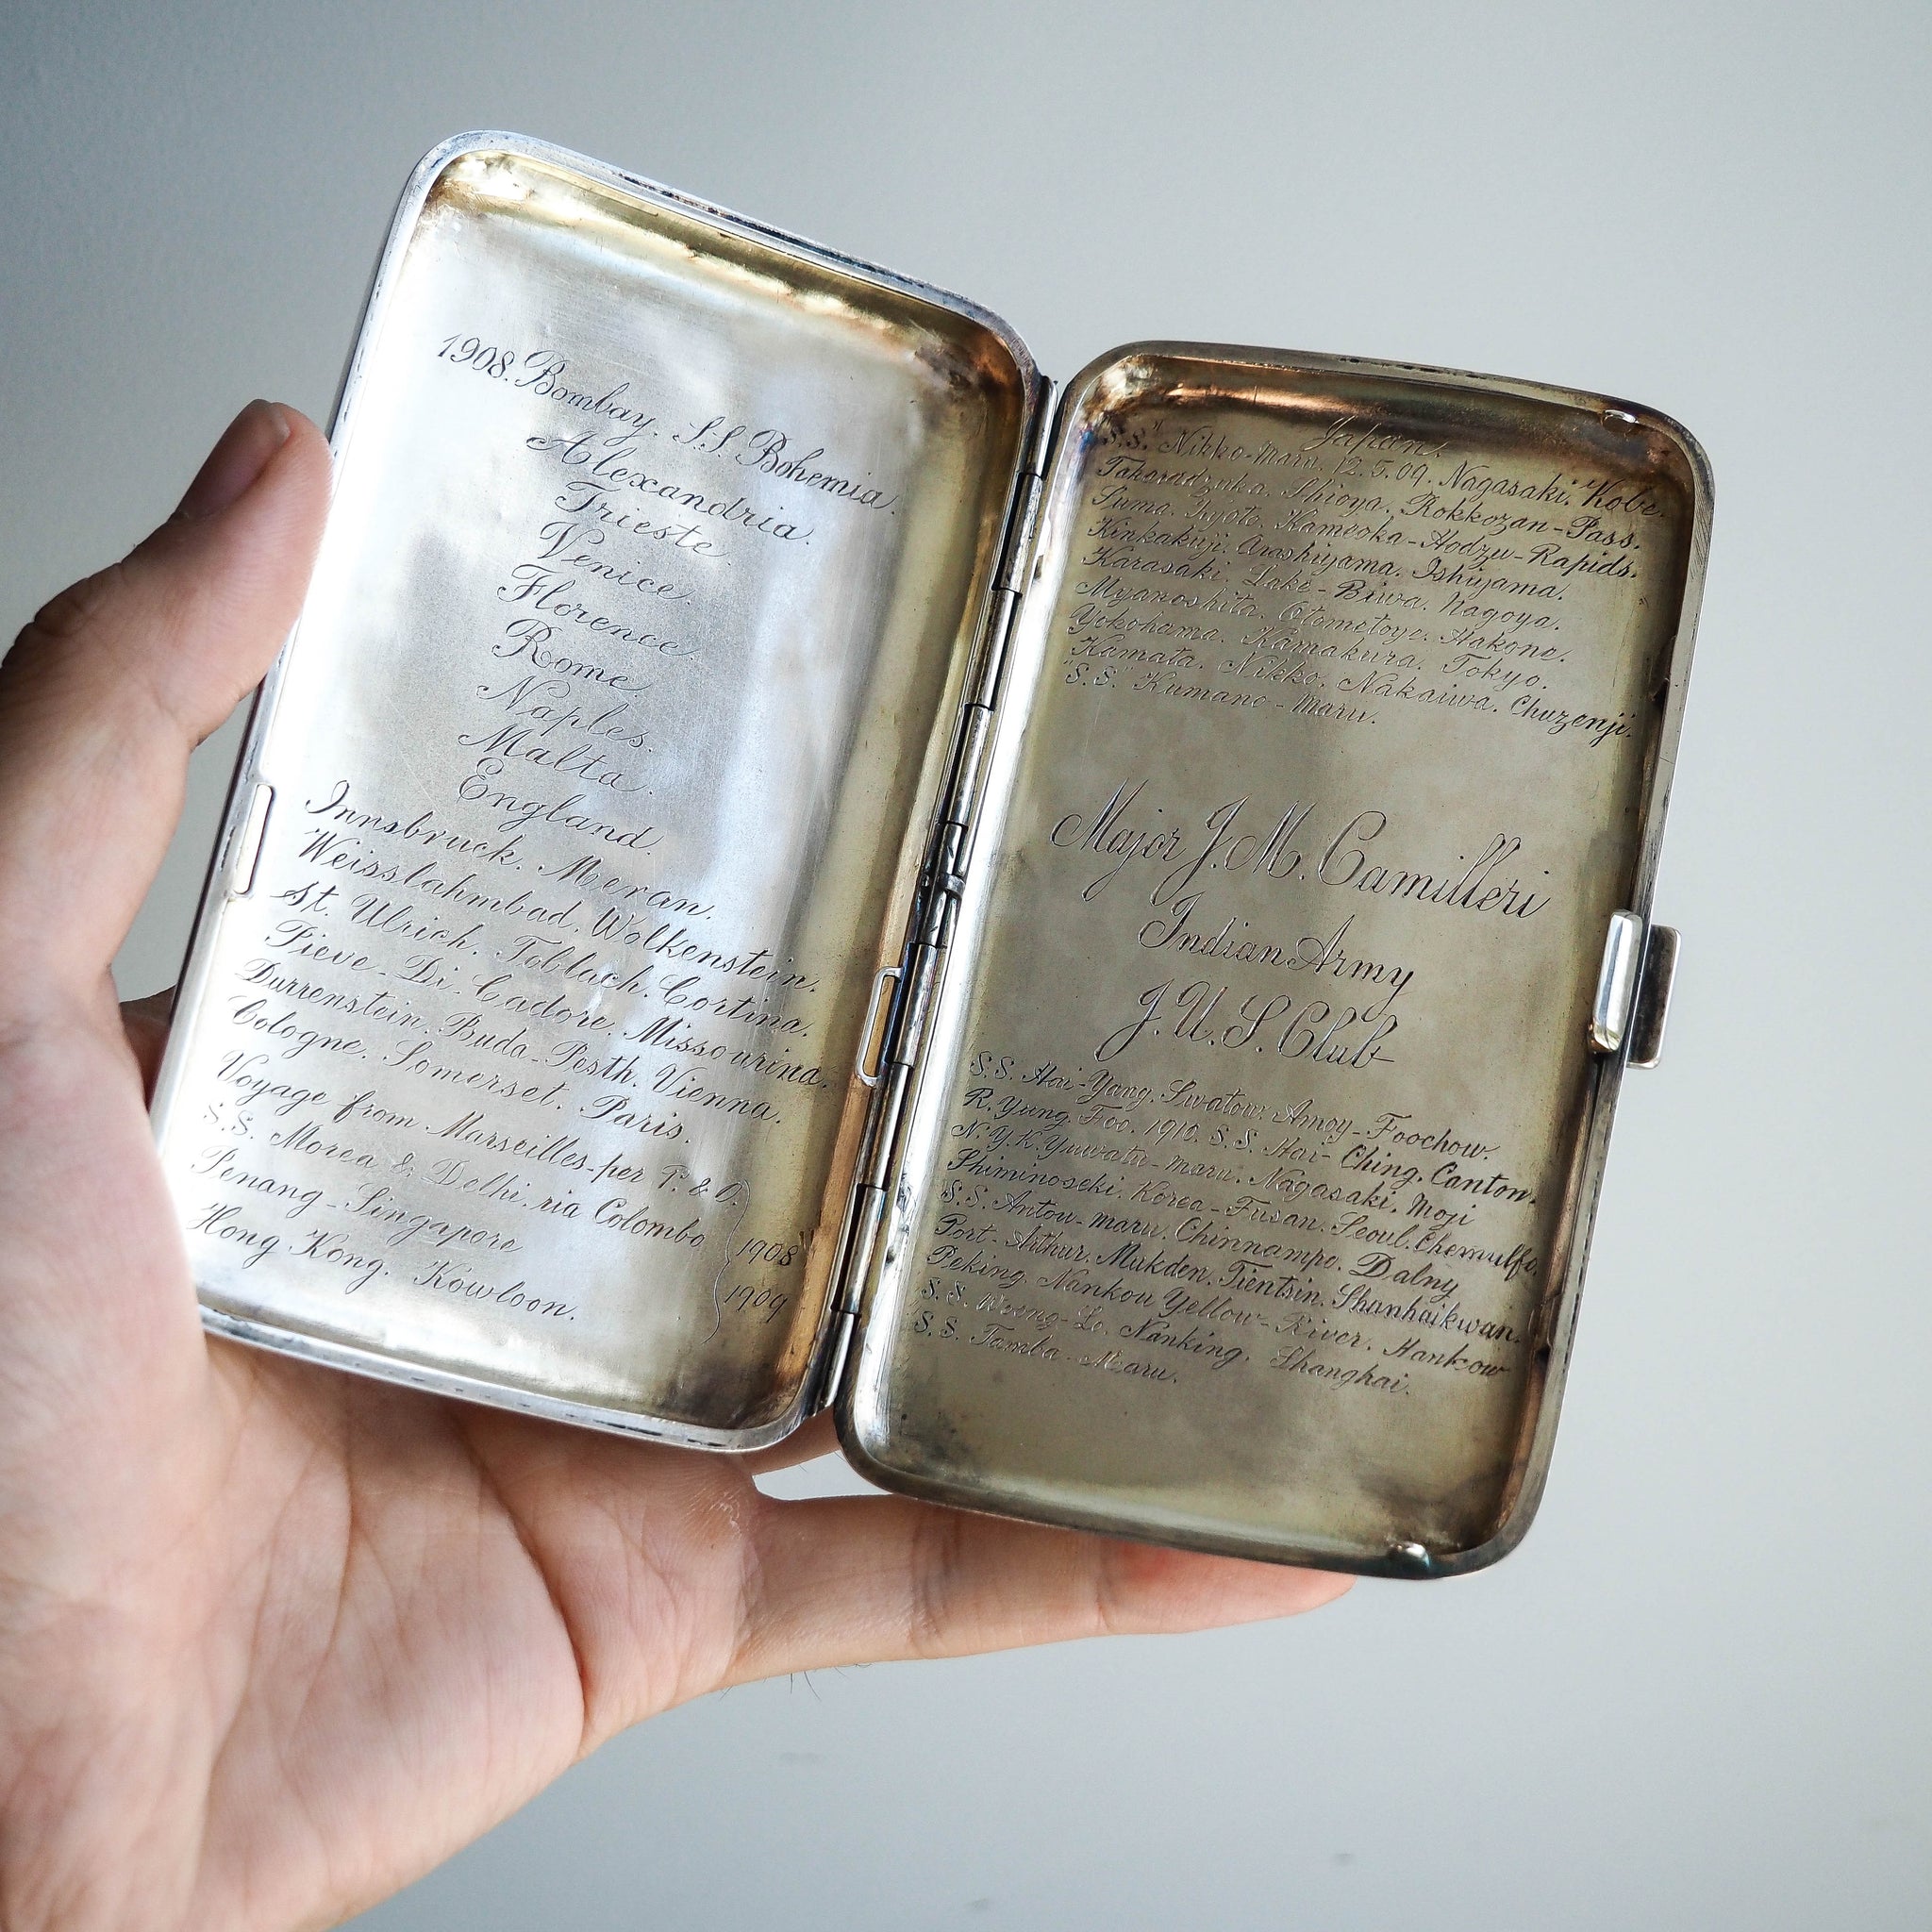 1908. Bombay. S.S. Bohemia.
Alexandria.
Trieste.
Venice.
Florence.
Rome.
Naples.
Malta.
England.
Innsbruck. Meran.
Weisslahmbad. Wolkenstein.
St. Ulrich. Toblach. Cortina.
Pieve-Di-Cadore. Missourina.
Durrenstein. Buda-Pesth. Vienna.
Cologne. Somerset. Paris.
Voyage from Marseilles-per P. & O.
S.S. Morea & Delhi. via Colombo
Penang-Singapore 1908
Hong Kong. Kowloon. 1909
Japan.
"S.S." Nikko-Maru. 12.5.09. Nagasaki. Kobe.
Takaradzuka. Shioya. Rokkozan-Pass.
Suma. Kyoto. Kameoka-Hodzu-Rapids.
Kinkakuji. Arashiyama. Ishiyama.
Karasaki. Lake-Biwa. Nagoya.
Myanoshita. Otometoge. Hakone.
Yokohama. Kamakura. Tokyo.
Kamata. Nikko. Nakaiwa. Chuzenji.
"S.S." Kumano-Maru.
Major J. M. Camilleri
Indian Army
J. U. S. Club
S.S. Hai-Yang. Swatow: Amoy-Foochow.
R. Yung. Foo. 1910. S.S. Hai-Ching. Canton.
N.Y.K. Yuwatu-maru. Nagasaki. Moji
Shiminoseki. Korea-Fusan. Seoul. Chemulfo.
S.S. Antou-maru. Chinnampo. Dalny
Port-Arthur. Mukden. Tientsin. Shanhaikwan.
Peking. Nankou Yellow-River. Hankow
S.S. Nanking. Shanghai.
S.S. Tamba-Maru.